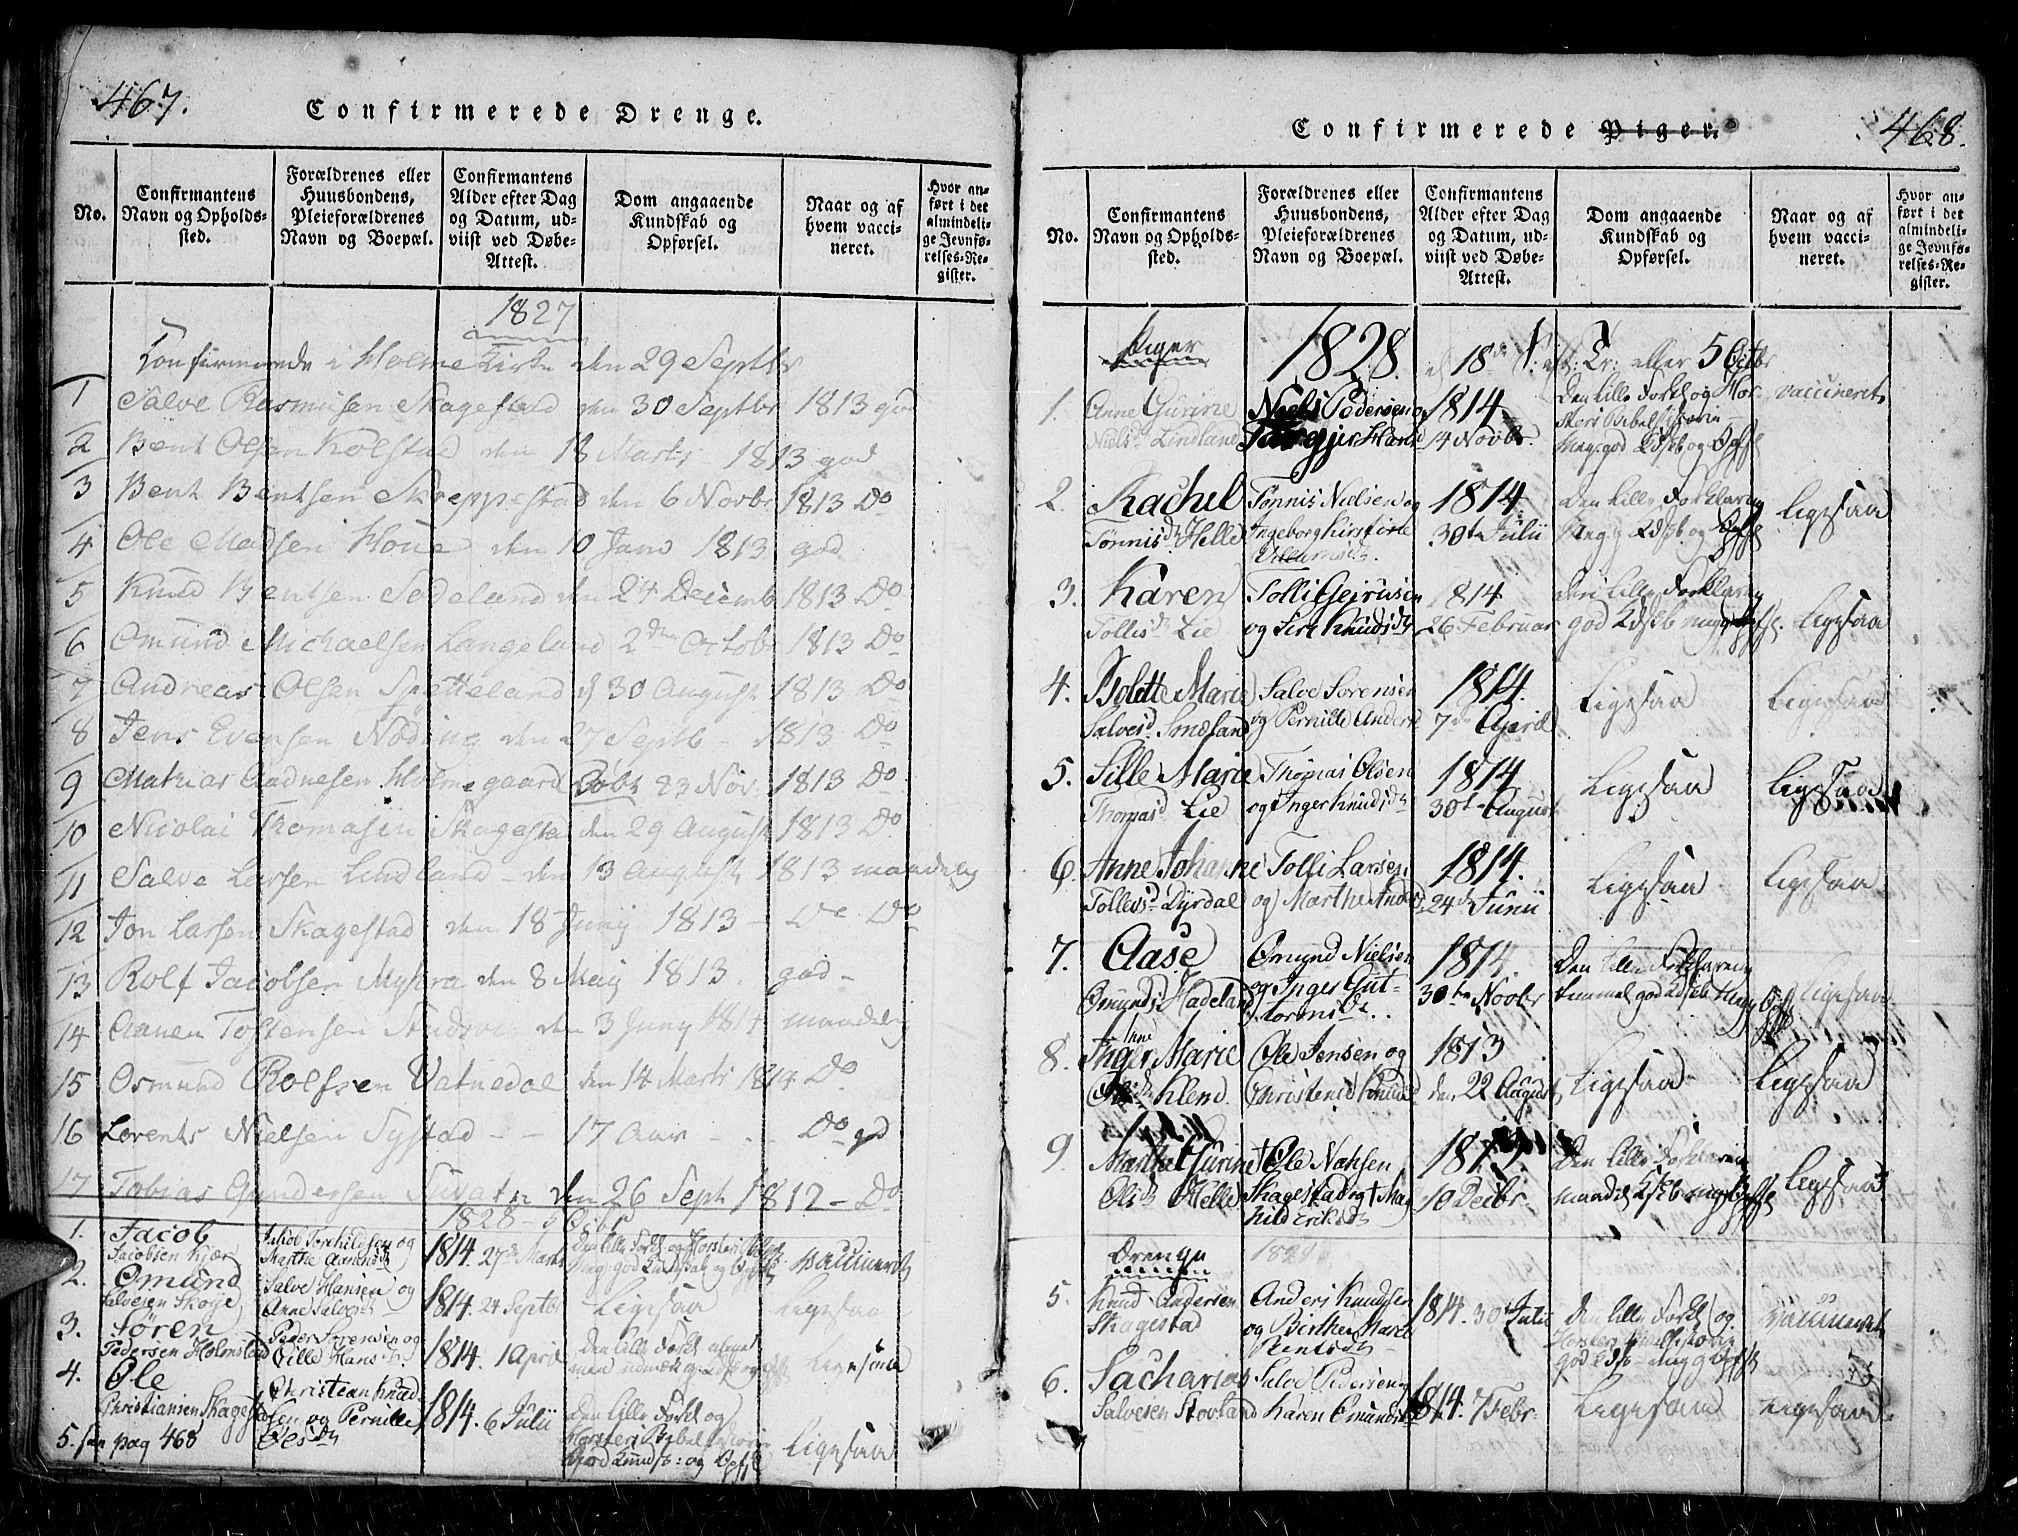 467.
Confirmerede Drenge.
No.
Confirmantens Navn og Opholds-sted.
Forældrenes eller Huusbondens, Pleieforældrenes Navn og Boepæl.
Confirmantens Alder efter Dag og Datum, ud-viist ved Døbe-Attest.
Dom angaaende Kundskab og Opførsel.
Naar og af hvem vacci-neret.
Hvor an-ført i det almindeli-ge Jevnfø-relses-Re-gister.
1827
Confirmerede i Holme Kirke den 29 Septbr
1 Salve Rasmusen Skagestad den 30 Septbr 1813 god
2 Bent Olsen Kolstad den 18 Marts - 1813 god
3 Bent Bentsen Skreppestad den 6 Novbr 1813 Do
4 Ole Madsen Houe den 10 Janv 1813 god
5 Knud Bentsen Sodeland den 24 Decemb 1813 Do
6 Omund Michaelsen Langeland 2den Octob 1813 Do
7 Andreas Olsen Spetteland d 30 August 1813 Do
8 Jens Evensen Nøding den 27 Septb - 1813 Do
9 Mathias Aadnesen Holmegaard Døbt 23 Nov. 1813 Do
10 Nicolai Thomasen Skagestad den 29 August 1813 Do
11 Salve Larsen Lindland - den 13 August 1813 maadelig
12 Jon Larsen Skagestad den 18 Junij 1813 - Do Do
13 Rolf Jacobsen Myhra den 8 Maij 1813. god -
14 Aanen Tostensen den 3 Juny 1814 maadelig
15 Osmund Rolfsen Vatnedal den 14 Marts 1814 Do
16 Lorents Nielsen Systad - - 17 Aar - . - Do god
17 Tobias Gundersen den 26 Sept 1812 - Do
1828 - 5 Octbr
1. Jacob
Jacobsen Kjær
Jakob Torkildsen og
Marthe Aanensdr
1814. 27de Marts
vaccineret
2. Omund
Salvesen Skoÿe
Salve Hansen og
Anne Salvesdr
1814. 24 Septbr
Ligesaa
Ligesaa
3. Søren
Pedersen Holmstad
Peder Sørensen og
Sille Hansdr.
1814. 1 April
Ligesaa
4. Ole
Christiansen Skagestad
Christian Knud-
sen og Pernille
Olesdr
1814. 6 Julii
Den Lille Forkl og
Horsters Bibelhistorie
God Kundsk: og Opfsl
Ligesaa
5. see pag 468
468.
Confirmerede Piger.
No.
Confirmantens Navn og Opholds-sted.
Forældrenes eller Huusbondens, Pleieforældrenes Navn og Boepæl.
Confirmantens Alder efter Dag og Datum, ud-viist ved Døbe-Attest.
Dom angaaende Kundskab og Opførsel.
Naar og af hvem vacci-neret.
Hvor an-ført i det almindeli-ge Jevnfø-relses-Re-gister.
Piger 1828. d 18de S. eft: Tr: eller 5 Octbr
1. Anne Gurine
Nielsd. Lindland
Niels Pedersen og
1814.
14 Novbr.
Den Lille Forkl og Hor-
sters Bibelhistorie
Meg. god Kdskb og Opfsl
vaccineret
2. Rachel
Tønnisdr Helle
Tønnis Nielsen og
Ingeborg Kirstine
Villumsdr
1814
30te Julii
Den Lille Forklaring
Meg. g Kdskb og Opfsl
Ligesaa
3. Karen
Tollisdr Lie
Tolli Gejrusen
og Siri Knudsdr
1814
26 Februar
Den Lille Forklaring
god Kdskb meg g Opfsl.
Ligesaa
4. Bolette Marie
Salvesd. Smedland
Salve Sørensen
og Pernille Andersd
1814.
7de April
Ligesaa
Ligesaa
5. Sille Marie
Thomasd. Lie
Thomas Olsen
og Inger Knudsdr
1814
30te August
Ligesaa
Ligesaa
6. Anne Johanne
Tollevsd. Dyrdal
Tolli Larsen
og Marthe Andersd
1814.
24de Junii
Ligesaa
Ligesaa
7. Aase
Omundsd Hadeland
Omund Nielsen
og Inger Gut-
tormsdr.
1814.
30te Novbr
Den Lille Forklaring
temmel god Kdskb Meg g Opfsl
Ligesaa
8. Anne
Inger Marie
Olisdr Klend
Ole Jensen og
Christense Knudsd
1813
den 22 August
Ligesaa
Ligesaa
9. Marthe Gurine
Olisdr Helle
† Ole Nahsen
Skagestad og † Mag
hild Eriksdr
10 Decbr
Den Lille Forklaring
maadel Kdskb meg g Opfsl
Ligesaa
Drenge 1828
5. Knud Andersen
Skagestad
Anders Knudsen
og Birthe Marie
Bentsdr
1814. 30te Julii
Den Lille Forkl og
Horsters Bibelhistorie
god Kdsk - meg g Opfsl
Vaccineret
6. Sacharias
Salvesen Stovland
Salve Pedersen og
Karen Omundsd
1814. 7 Febr
Ligesaa
Ligesaa